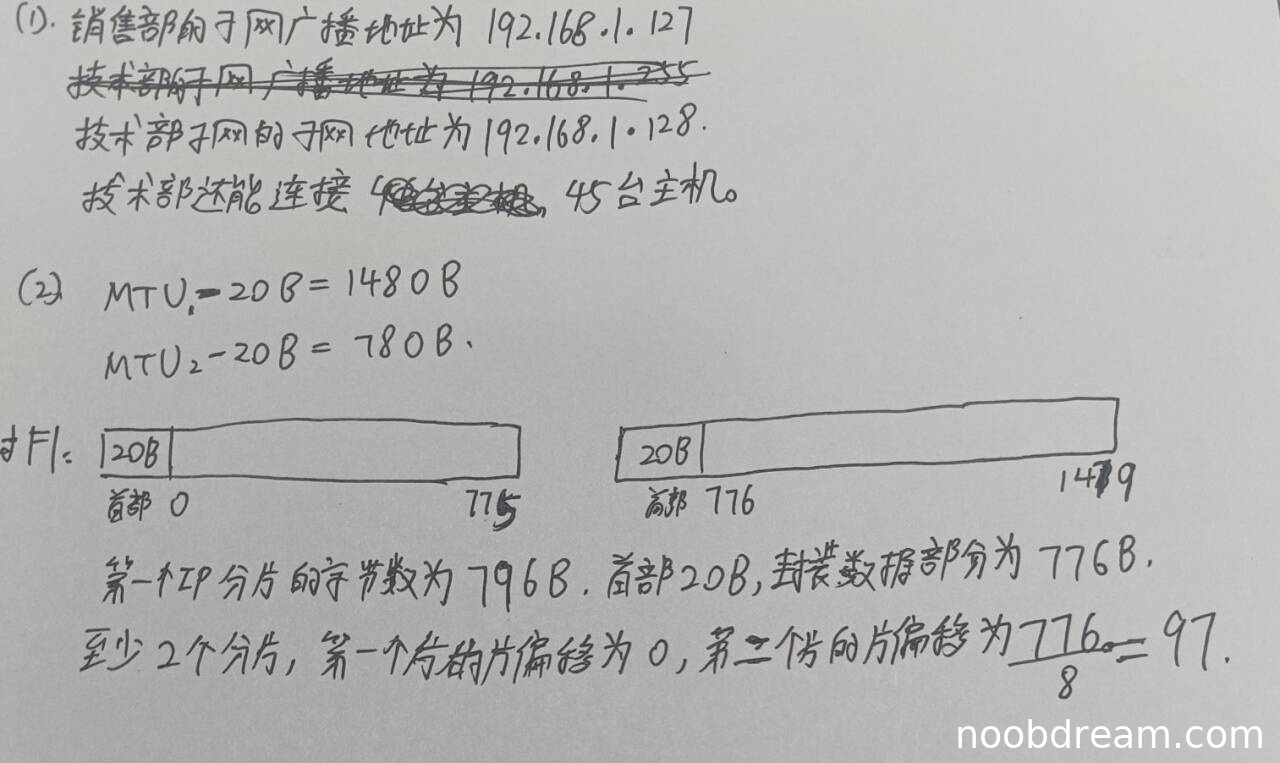 (1). 销售部的子网广播地址为 192.168.1.127
技术部的子网广播地址为 192.168.1.255
技术部子网的子网地址为192.168.1.128.
技术部还能连接 45台主机。
(2) MTU₁-20B=1480B
MTU₂-20B=780B.
对F1:
20B 20B
首部 0 775 首部 776 1479
第一个IP分片的字节数为796B.首部20B,封装数据部分为776B.
至少2个分片,第一个片的片偏移为0,第二个片的片偏移为776/8=97.
noobdream.com